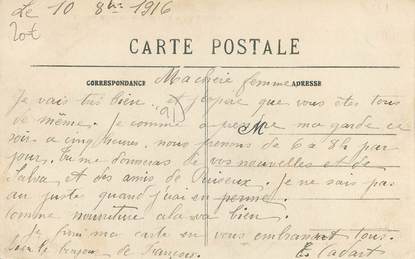 Le 10 8bre 1916
20€
CARTE POSTALE
CORRESPONDANCE
ADRESSE
Ma cheire femme
Je vais très bien et j'espère que vous êtes tous
de même. Je commence à prendre ma garde ce
soir a cinq heures, nous prenons de 6 a 8h par
jour. Tu me donneras de vos nouvelles et de
et des amis de Puiseux. Je ne sais pas
au juste quand j'irai en perme.
Comme nourriture cela va bien.
Je fini ma carte en vous embrassant tous.
le bonjour de François. E. Cadart
M